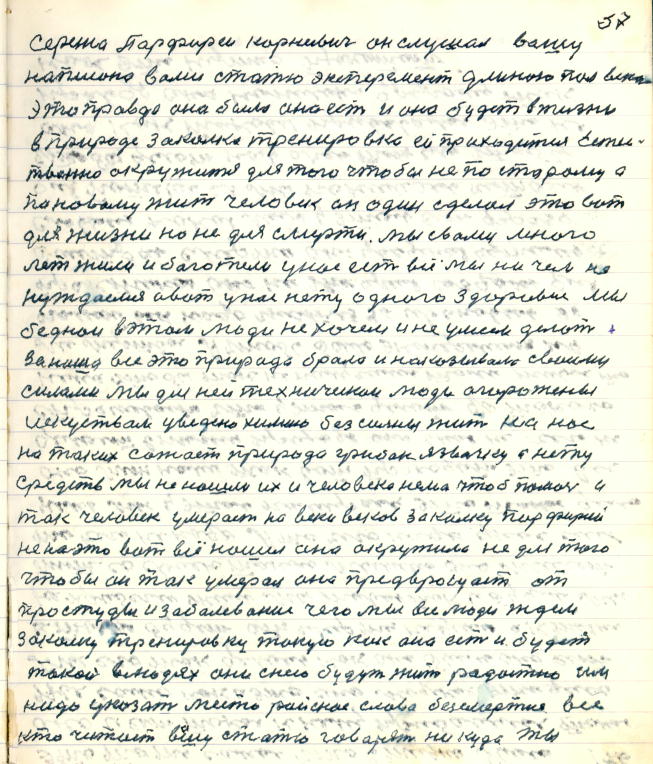 57
Сережа Парфирей корневич он слушал вашу
написона вами статю эксперемент длиною пол века
Это правда она была она ест и она будет в жизни
в природе Закалка тренировка ей приходится естес-
твенно окружится для того чтобы не по старому а
по новому жит человек он один сделал это вот
для жизни но не для смерти. мы с вами много
лет жили и багатели у нас ест всё мы ни чем не
нуждаемся а вот у нас нету одного Здоровье мы
бедном в этом люди не хочем и не умеем делат
за наша все это природа брала и наказывала своими
силами мы для ней техническом люди огорожены
искуствам уведено химию безсилны жит на нас
на таких сожает природа грибок язвочку а нету
средств мы не нашли их и человека нема чтоб помоч и
так человек умерает на веки веков закалку Парфирий
не на это вот всё нашел она окружила не для того
чтобы он так умерал она предвросхает от
простуды и заболевание чего мы все люди ждем
Закалку тренировку такую как она ест и будет
такой в людях они с нею будут жит радостно им
надо указат место райское слова безсмертие все
кто читает вашу статю говорят никуда ты